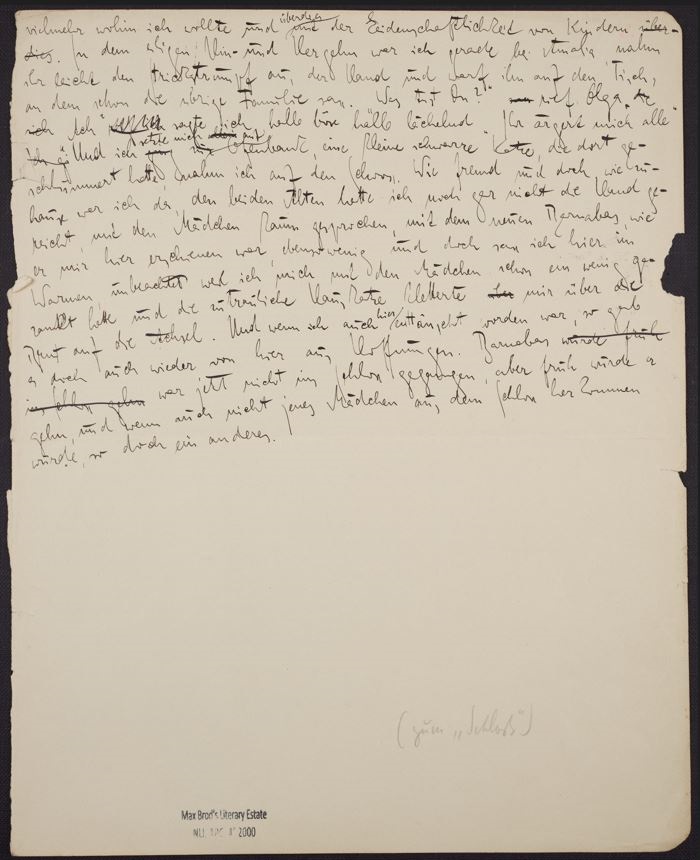 vielmehr wohin ich wollte und überdies mit der Leidenschaftlichkeit von Kindern über-
dies. In dem ewigen Hin- und Hergehn war ich gerade bei Amalia, nahm
ihr leicht den Tricotstrumpf aus der Hand und warf ihn auf den Tisch,
an dem schon die übrige Familie sass. "Was tust Du?" rief Olga. "Ach"
sagte ich, halb böse halb lächelnd "Ihr ärgert mich alle"
Und ich setzte mich auf die Ofenbank, eine kleine schwarze Katze, die dort ge-
schlummert hatte, nahm ich auf den Schooss. Wie fremd und doch wie zu-
hause war ich da, den beiden Alten hatte ich noch gar nicht die Hand ge-
reicht, mit den Mädchen kaum gesprochen, mit dem neuen Barnabas, wie
er mir hier erschienen war, ebensowenig und doch sass ich hier im
Warmen, unbeachtet weil ich mich mit den Mädchen schon ein wenig ge-
zankt hatte und die zutrauliche Hauskatze kletterte mir über die
Brust auf die Achsel. Und wenn ich auch hier enttäuscht worden war, so gab
es doch auch wieder von hier aus Hoffnungen. Barnabas würde früh
ins Schloss gehn war jetzt nicht ins Schloss gegangen, aber früh würde er
gehn, und wenn auch nicht jenes Mädchen aus dem Schloss herkommen
würde, so doch ein anderes.
(zum „Schloß")
Max Brod's Literary Estate
2000